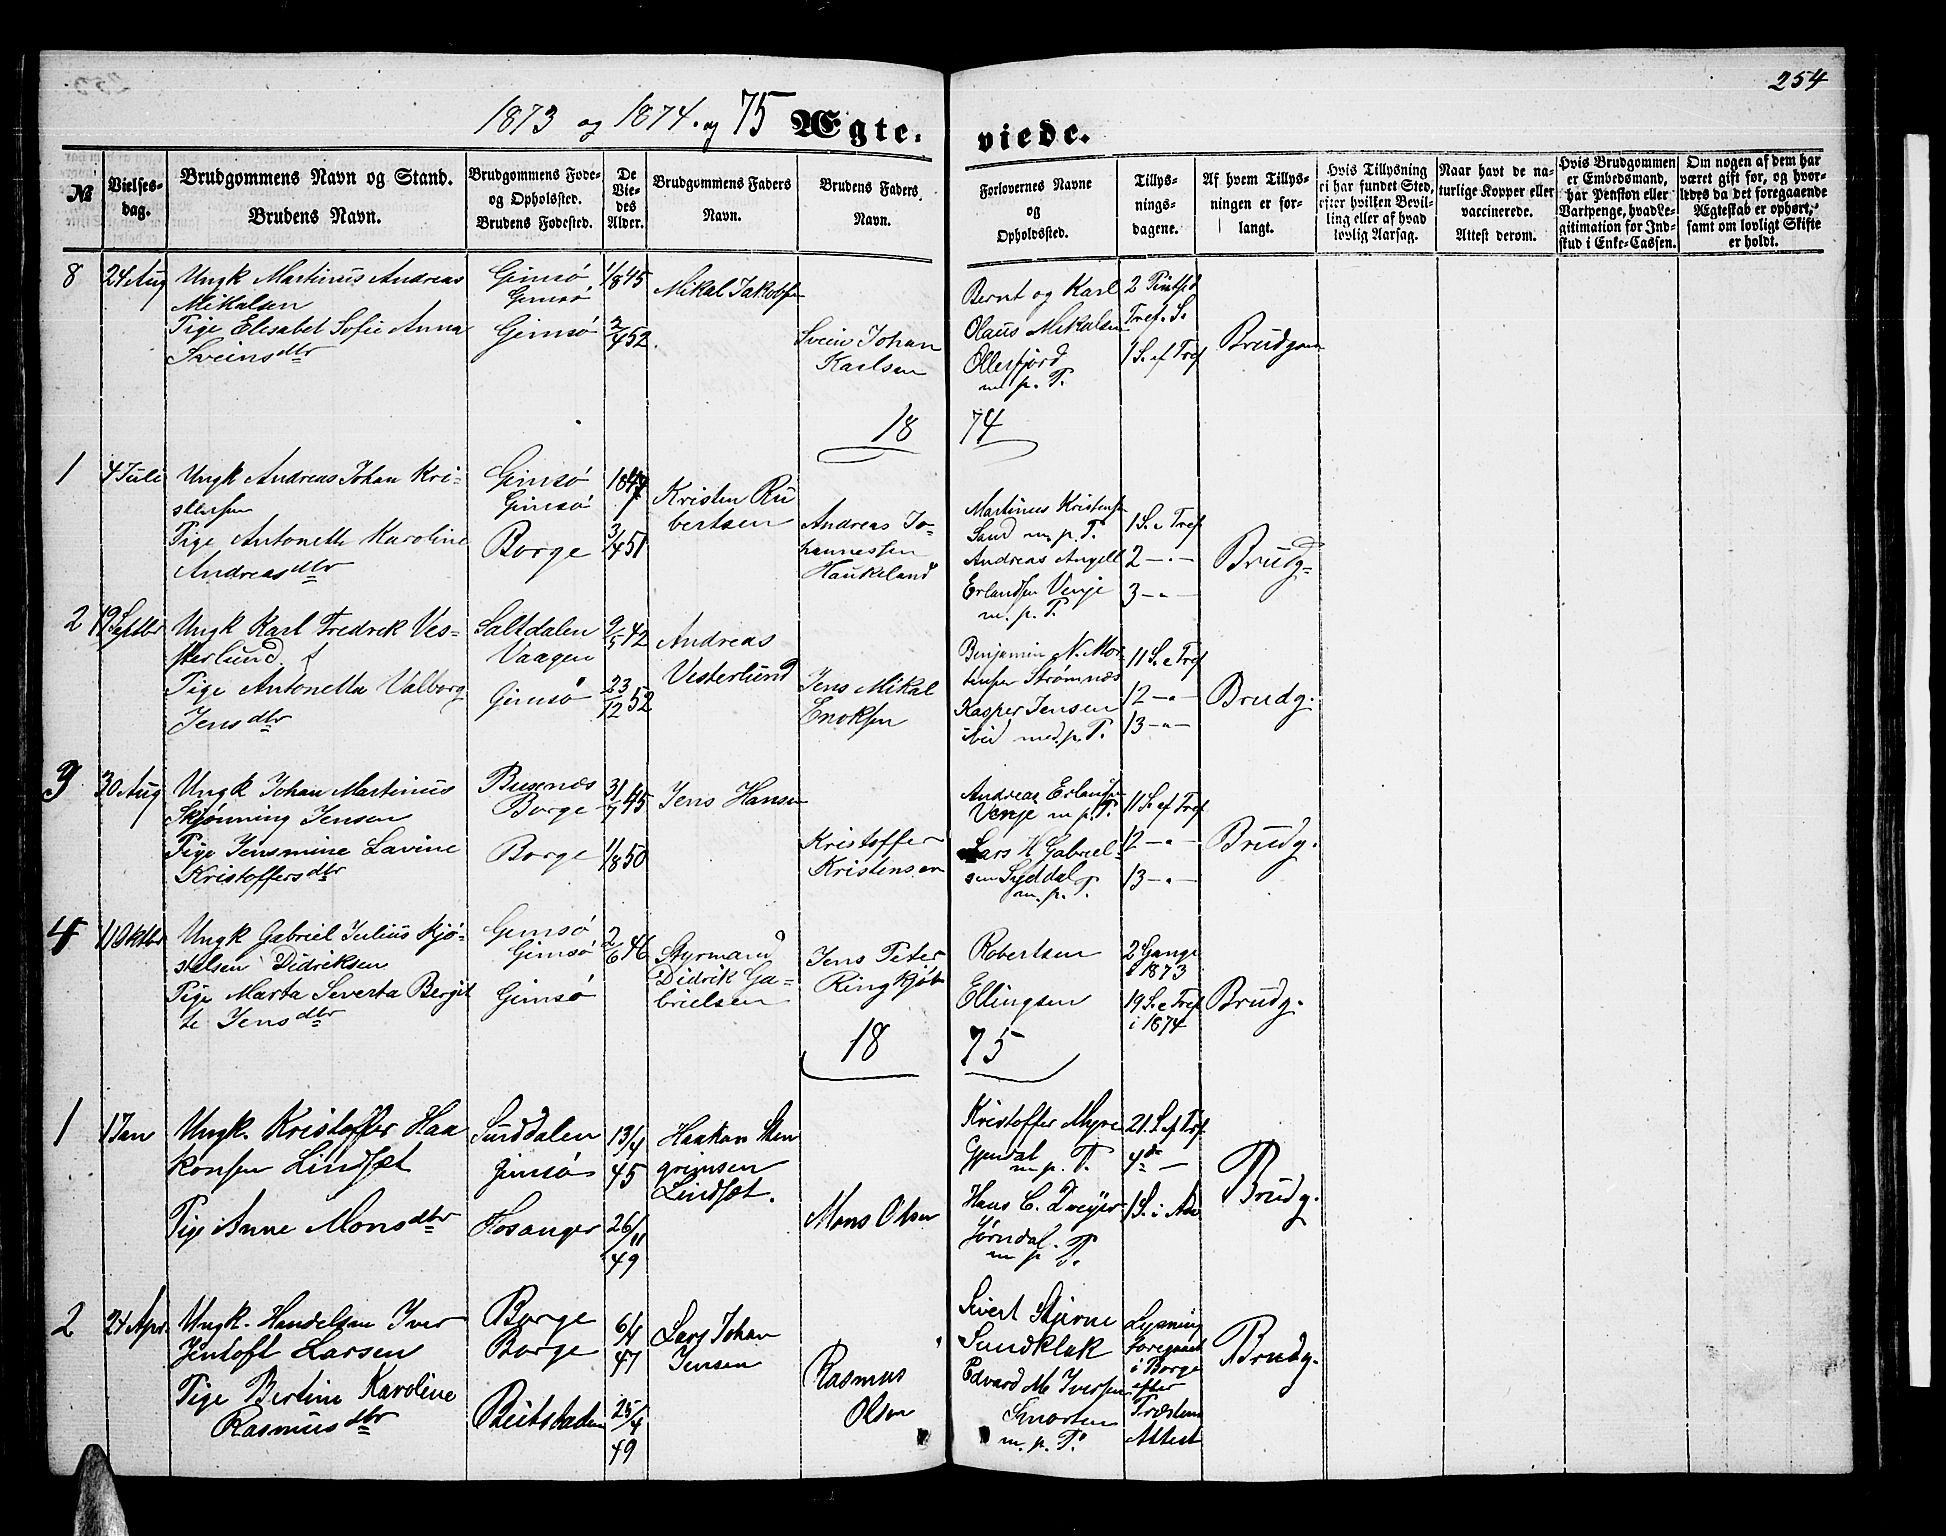 254
1873 og 1874. og 75 Ægte= viede.
№
Vielses-
dag.
Brudgommens Navn og Stand.
Brudens Navn.
Brudgommens Føde-
og Opholsted.
Brudens Fødested.
De
Vie-
des
Alder.
Brudgommens Faders
Navn.
Brudens Faders
Navn.
Forlovernes Navne
og
Opholdssted.
Tillys-
nings-
dagene.
Af hvem Tillys-
ningen er for-
langt.
Hvis Tillysning
ei har fundet Sted,
efter hvilken Bevil-
ling eller af hvad
lovlig Aarsag.
Naar havt de na-
turlige Kopper eller
vaccinerede.
Attest derom.
Hvis Brudgommen
er Embedsmand,
har Pension eller
Vartpenge, hvad Le-
gitimation for Ind-
skud i Enke-Cassen.
Om nogen af dem har
været gift før, og hvor-
ledes da det foregaaende
Ægteskab er ophørt,
samt om lovligt Skifte
er holdt.
8
24 Aug
Ungk Martinus Andreas
Mikalsen
Tige Elisabet Sofie Anna
Sveinsdtr
Gimsö
Gimsö
Gimsö
1/8 45
2/4 52
Mikal Jakobsen
Svein Johan
Karlsen
Bernt og Karl
Olaus Mikalsen
Ollersfjord
m. p. P.
2 Pintsd
Tref. S.
1 S. ef Tref
Brudgom
18 74
1
4 Juli
Ungk Andreas Johan Kri-
stensen
Pige Antonette Karoline
Andreasdtr
Gimsö
Gimsö
Borge
1847
3/4 51
Kristen Ru
bertsen
Andreas Jo-
hannessen
Haukeland
Martinus Kristensen
Sand m. p. P.
Andreas Angell
Erlandsen Venje
m. p. P.
1 S. e Tref
2 - " -
3 - " -
Brudg=
2
19 Septbr
Ungk Karl Fredrek Ves-
terlund
Pige Antonetta Valborg
Jensdtr
Saltdalen
Vaagen
Gimsö
9/5 42
23/12 52
Andreas
Vesterlund
Jens Mikal
Enoksen
Benjamin N. Mor
tensen Strømnæs
Kasper Jensen
ibid med. p. P.
11 S. e Tref
12 - " -
13 - " -
Brudg.
3
30 Aug
Ungk Johan Martinus
Skjönning Jensen
Pige Jensmine Lavine
Kristoffersdtr
Busenæs
Borge
Borge
31/7 45
1/8 50
Jens Hansen
Kristoffer
Kristensen
Andreas Erlandsen
Venje m p. P.
Lars H Gabriel-
sen Syddal
m. p. P.
11 S. ef Tref
12 - " -
13 - " -
Brudg.
4
11 Oktbr
Ungk Gabriel Julius Kjö-
stelsen Didriksen
Pige Marta Severta Bergit
te Jensdtr
Gimsö
Gimsö
Gimsö
2/6 46
Styrmand
Didrik Ga-
brielsen
Jens Peter
Ringkjöb
Robertsen
Ellingsen
2 Gange
i 1873
19 S. e Tref
i 1874
Brudg.
18 75
1
1 Jan
Ungk. Kristoffer Haa
konsen Lindsæt
Pige Anne Monsdtr
Surddalen
Gimsö
Hosanger
13/4
45
26/11
49
Haakon Sten
grimsen
Lindsæt.
Mons Olsen
Kristoffer Myre
m. p. P.
Hans C. Dreyer
Jørndal.
m p P.
21. S. ef Tref
4de -
1 S. i Adv
Brudg.
2
24 Apr.
Ungk. Handelsm Iver
Jentoft Larsen
Pige Bertine Karoline
Rasmusdtr
Borge
Borge
Beitstaden
6/4
47
25/4
49
Lars Johan
Jensen
Rasmus
Olsen
Sivert Stjerne
Sundklak
Edvard M. Iversen
Smorten
m. p. P.
Lysning
foregaaet
i Borge
efter
Præstens
Attest
Brudg.